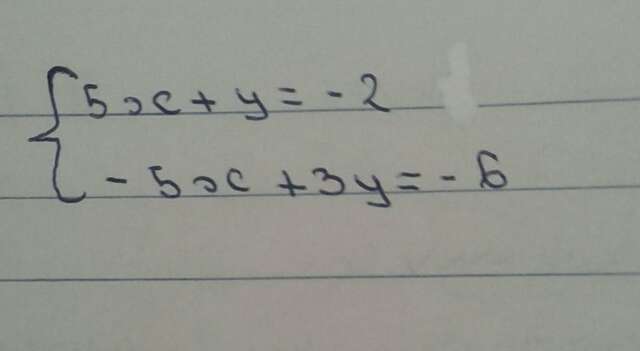 5x + y = -2
-5x + 3y = -6